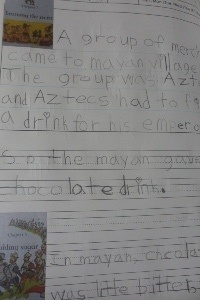 A group of
came to mayan village
The group was Azt
and Aztecs had to f
a drink for his emper
So the mayan gave
chocolate drink.
adding sugar
In mayan, chcola
was little bitter